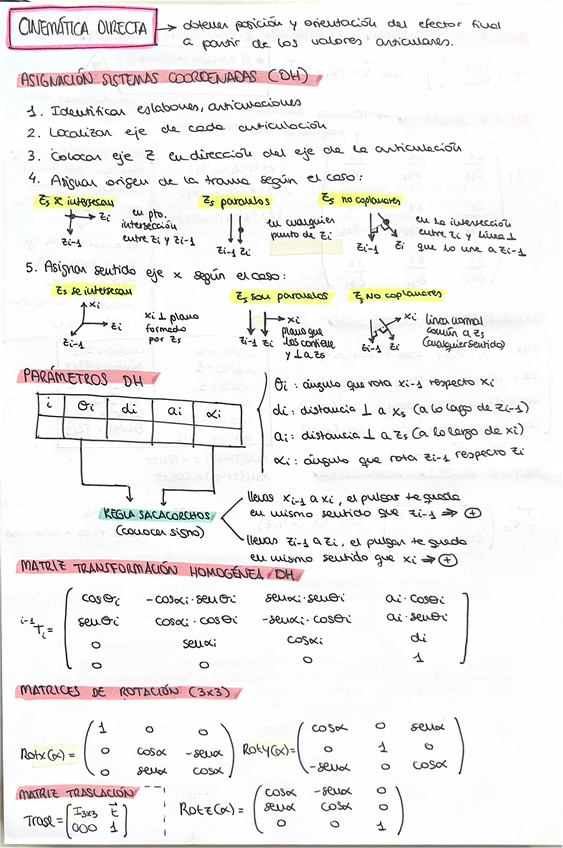 CINEMÁTICA DIRECTA → obtener posición y orientación del efector final
a partir de los valores articulares.
ASIGNACIÓN SISTEMAS COORDENADAS (DH)
1. Identificar eslabones, articulaciones
2. Localizar eje de cada articulación
3. Colocar eje Z en dirección del eje de la articulación
4. Asignar origen de la trama según el caso:
Zs se intersecan
Zi
Zi-1
en pto.
intersección
entre Zi y Zi-1
Zs paralelos
Zi-1 Zi
en cualquier
punto de Zi
Zs no coplanares
Zi-1 Zi
en la intersección
entre Zi y línea ⊥
que lo une a Zi-1
5. Asignar sentido eje x según el caso:
Zs se intersecan
xi
Zi
Zi-1
xi ⊥ plano
formado
por Zs
Zs son paralelos
xi
Zi-1 Zi
plano que
los contiene
y ⊥ a Zs
Zs NO coplanares
xi
Zi-1 Zi
línea normal
común a Zs
(cualquier sentido)
PARÁMETROS DH
i θi di ai αi
θi : ángulo que rota xi-1 respecto xi
di : distancia ⊥ a xs (a lo largo de Zi-1)
ai : distancia ⊥ a Zs (a lo largo de xi)
αi : ángulo que rota Zi-1 respecto Zi
REGLA SACACORCHOS
(conocer signo)
llevas xi-1 a xi, el pulgar te queda
en mismo sentido que Zi-1 ⇒ ⊕
llevas Zi-1 a Zi, el pulgar te queda
en mismo sentido que xi ⇒ ⊕
MATRIZ TRANSFORMACIÓN HOMOGÉNEA DH
i-1Ti =
cosθi -cosαi·senθi senαi·senθi ai·cosθi
senθi cosαi·cosθi -senαi·cosθi ai·senθi
0 senαi cosαi di
0 0 0 1
MATRICES DE ROTACIÓN (3x3)
Rotx(α) =
1 0 0
0 cosα -senα
0 senα cosα
Roty(α) =
cosα 0 senα
0 1 0
-senα 0 cosα
MATRIZ TRASLACIÓN
Trasl =
I3x3 t
000 1
Rotz(α) =
cosα -senα 0
senα cosα 0
0 0 1